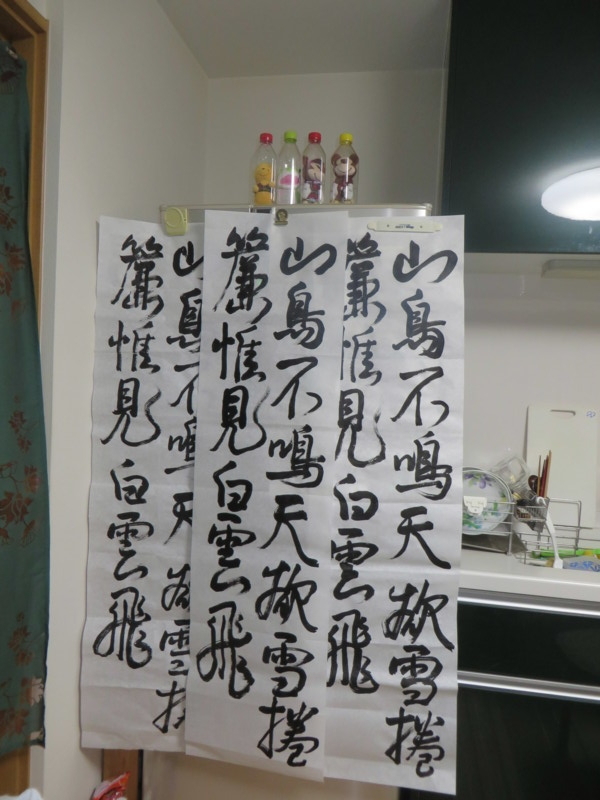 山鳥不鳴天欲雪捲
簾惟見白雲飛
山鳥不鳴天欲雪捲
簾惟見白雲飛
山鳥不鳴天欲雪捲
簾惟見白雲飛